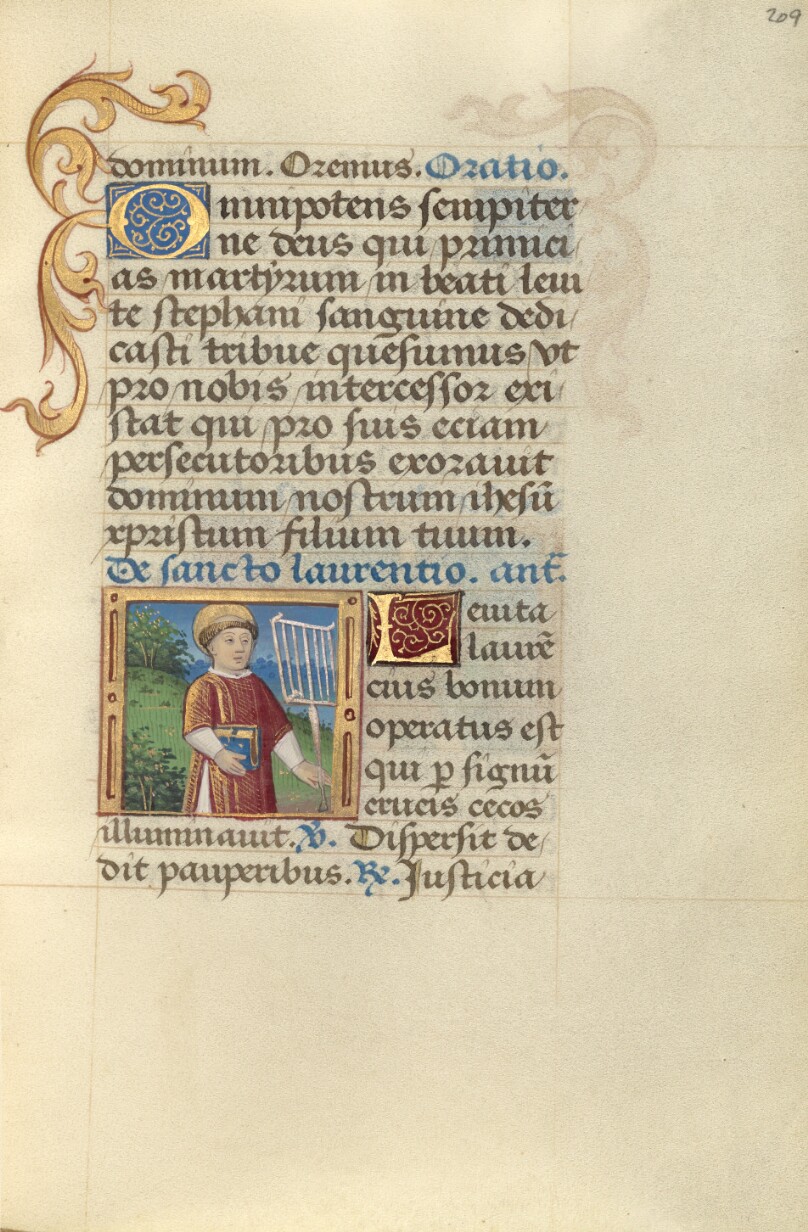 209
dominum. Oremus. Oratio.
Omnipotens sempiter
ne deus qui primici
as martyrum in beati leui
te stephani sanguine dedi
casti tribue quēsumus vt
pro nobis intercessor exi
stat qui pro suis eciam
persecutoribus exorauit
dominum nostrum ihesū
xpristum filium tuum.
De sancto laurentio. ant̄.
Leuita
laurē
cius bonum
operatus est
qui ꝑ signū
crucis cecos
illuminauit. ℣. Dispersit de
dit pauperibus. ℟. Justicia